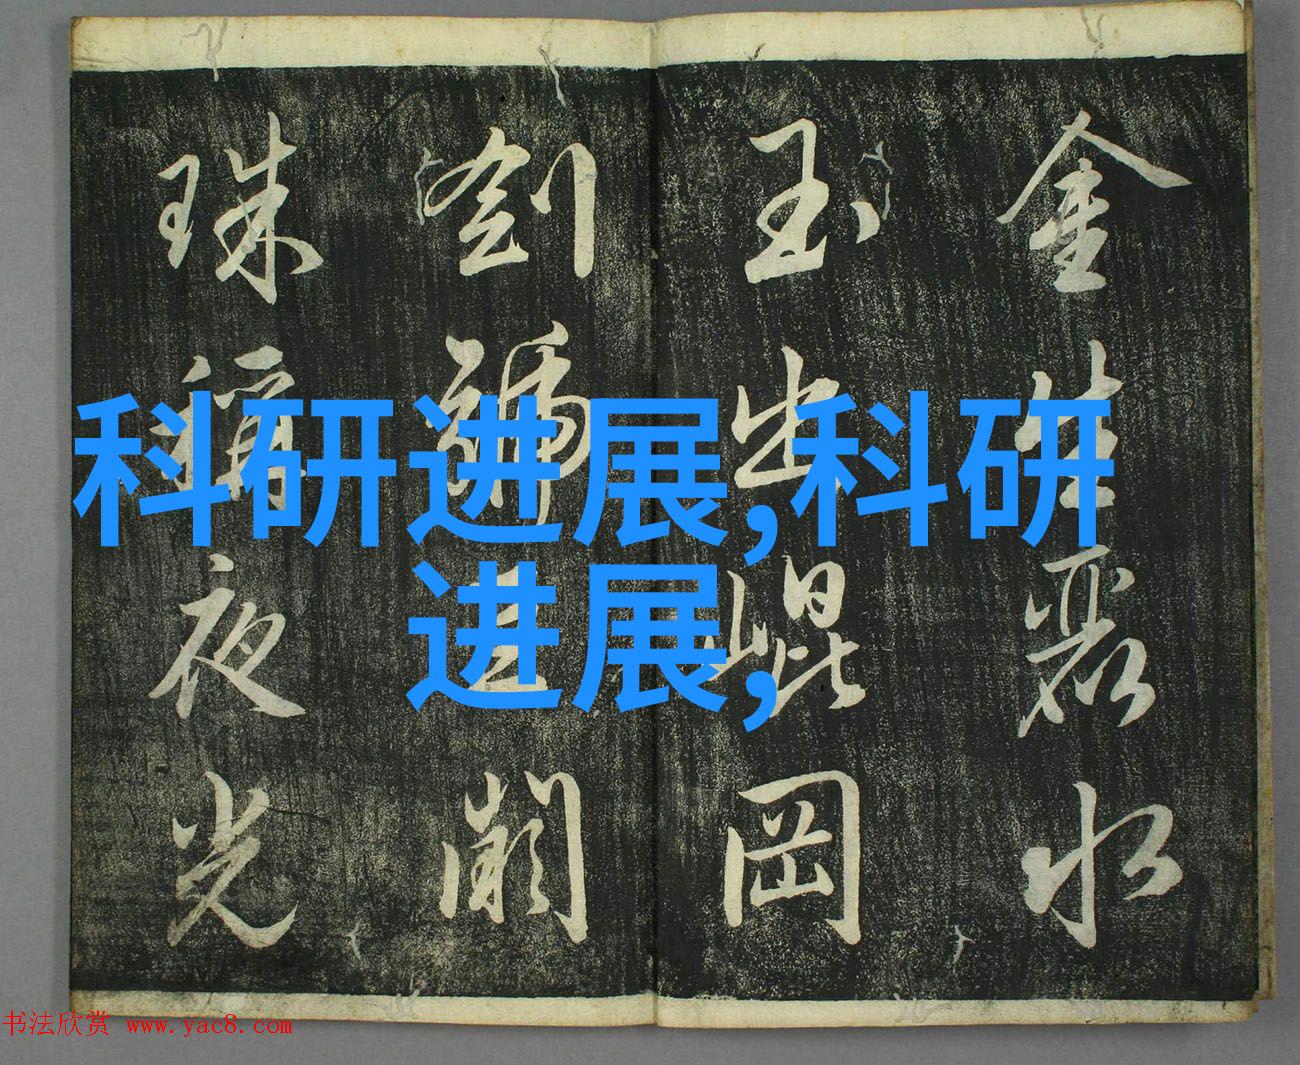 金生麗水
玉出崐岡
劍號巨闕
珠稱夜光
科研进展,科研
进展,
书法欣赏 www.yac8.com